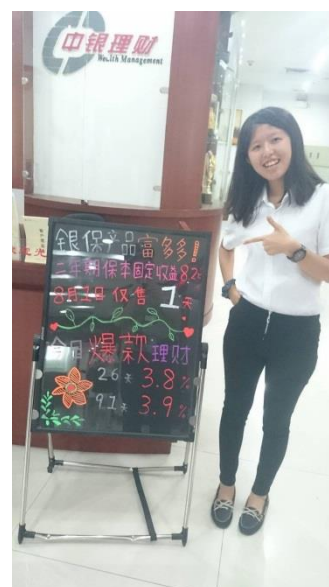 中银理财
Wealth Management
銀保产品富多多!
三年期保本固定收益8.2%
8月1日 仅售 1天
今日爆款理财
26天 3.8%
91天 3.9%